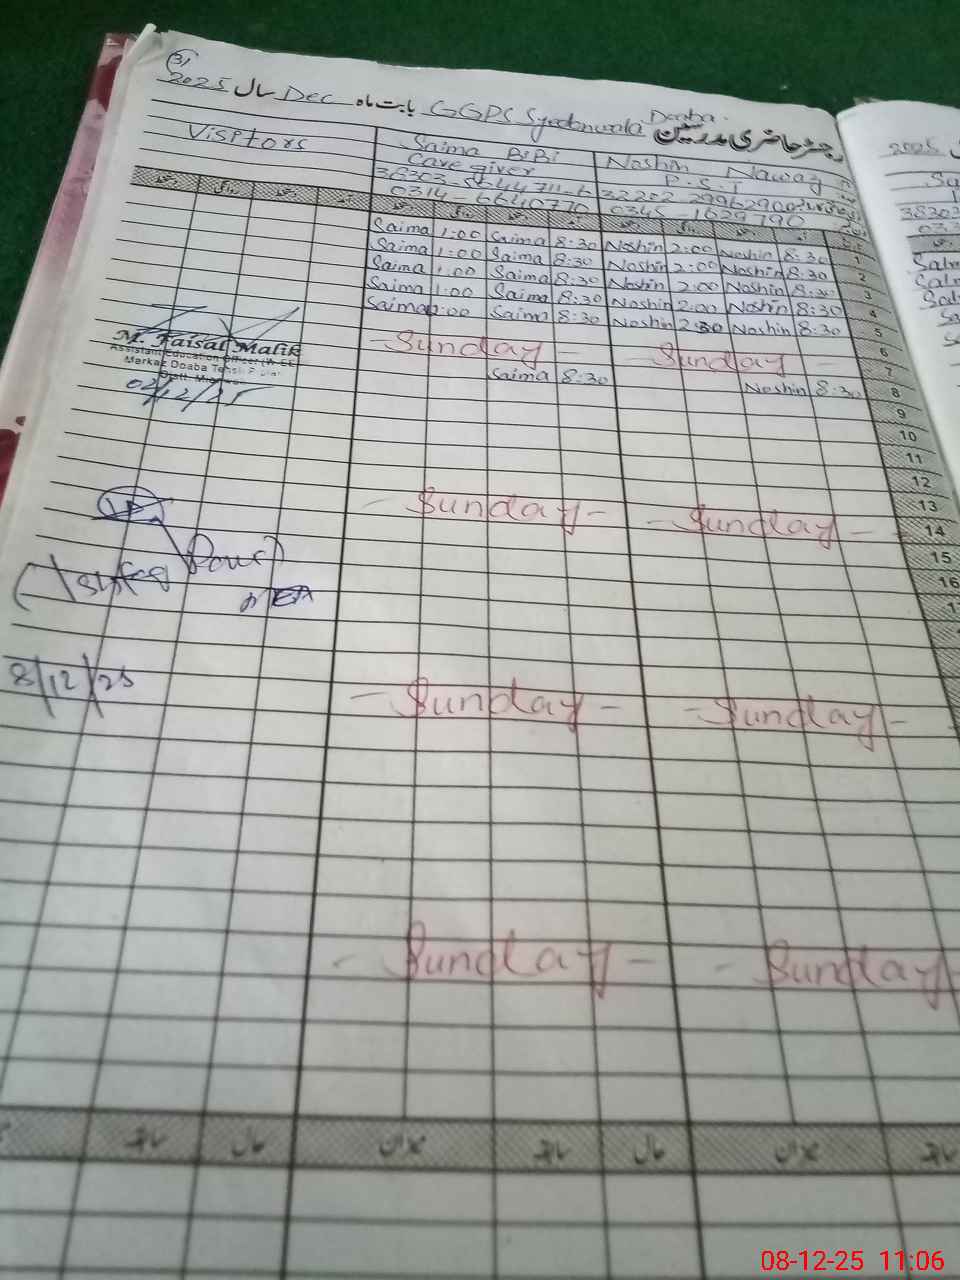 31
رجسٹر حاضری مدرسین GGPS Syedanwala Doaba بابت ماہ Dec سال 2025
Visitors
Saima BiBi
Care giver
38303-5644711-6
0314-6640770
Noshin Nawaz
P.S.T
0345-1629790
Saima 1:00 Saima 8:30 Noshin 2:00 Noshin 8:30 1
Saima 1:00 Saima 8:30 Noshin 2:00 Noshin 8:30 2
Saima 1:00 Saima 8:30 Noshin 2:00 Noshin 8:30 3
Saima 1:00 Saima 8:30 Noshin 2:00 Noshin 8:30 4
Saima :00 Saima 8:30 Noshin 2:30 Noshin 8:30 5
6
- Sunday - Sunday - 7
Saima 8:30 Noshin 8:30 8
9
10
11
12
13
- Sunday - - Sunday - 14
15
16
- Sunday - - Sunday -
- Sunday - - Sunday
M. Faisal Malik
Assistant Education Officer
Markaz Doaba
02/12/25
8/12/25
سابقہ حال میزان سابقہ حال میزان سابقہ
2025
38303
08-12-25 11:06